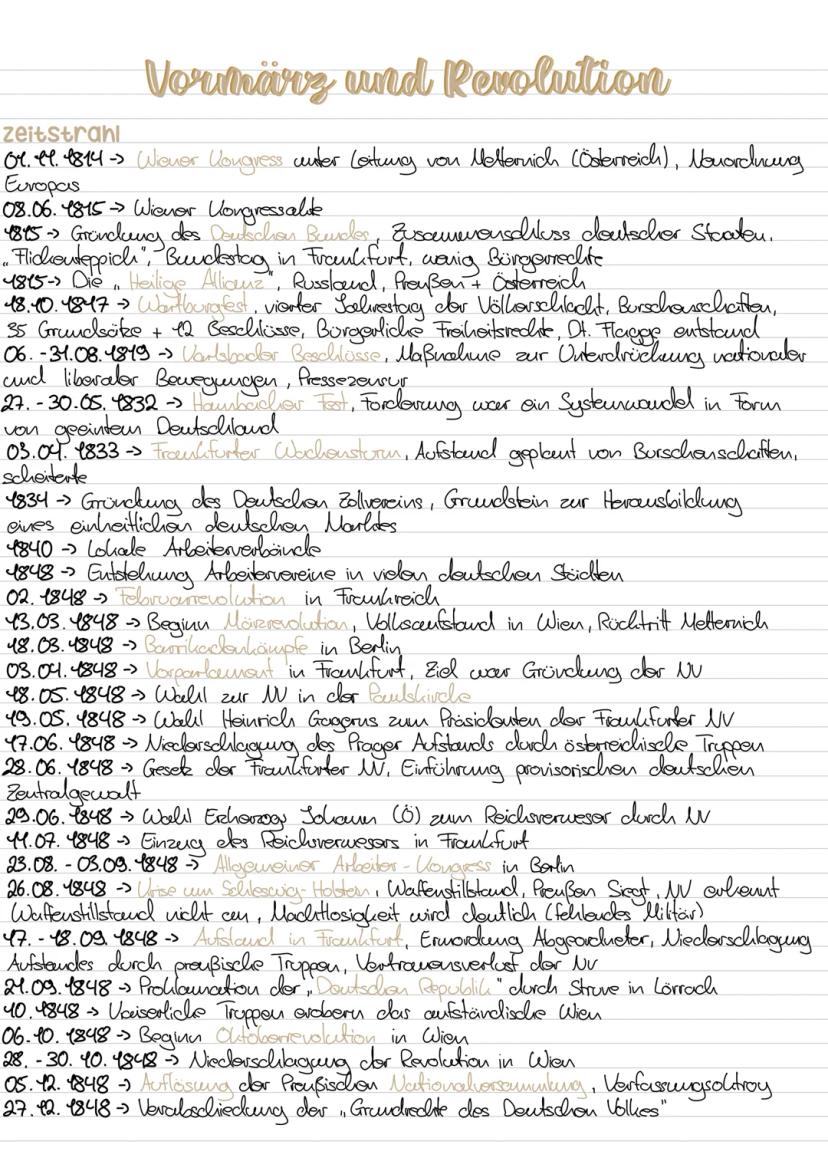 Vormärz und Revolution
zeitstrahl
01.11.1814 -> Wiener Kongress unter Leitung von Metternich (Österreich), Neuordnung
Europas
08.06.1815 -> Wiener Kongressakte
1815 -> Gründung des Deutschen Bundes, Zusammenschluss deutscher Staaten,
„Flickenteppich", Bundestag in Frankfurt, wenig Bürgerrechte
1815-> Die „Heilige Allianz", Russland, Preußen + Österreich
18.10.1817 -> Wartburgfest, vierter Jahrestag der Völkerschlacht, Burschenschaften,
35 Grundsätze + 12 Beschlüsse, Bürgerliche Freiheitsrechte, Dt. Flagge entstand
06.-31.08.1819 -> Karlsbader Beschlüsse, Maßnahme zur Unterdrückung nationaler
und liberaler Bewegungen, Pressezensur
27.-30.05.1832 -> Hambacher Fest, Forderung war ein Systemwandel in Form
von geeintem Deutschland
03.04.1833 -> Frankfurter Wachensturm, Aufstand geplant von Burschenschaften,
scheiterte
1834 -> Gründung des Deutschen Zollvereins, Grundstein zur Herausbildung
eines einheitlichen deutschen Marktes
1840 -> Lokale Arbeiterverbände
1848 -> Entstehung Arbeitervereine in vielen deutschen Städten
02.1848 -> Februarrevolution in Frankreich
13.03.1848 -> Beginn Märzrevolution, Volksaufstand in Wien, Rücktritt Metternich
18.03.1848 -> Barrikadenkämpfe in Berlin
03.04.1848 -> Vorparlament in Frankfurt, Ziel war Gründung der NV
18.05.1848 -> Wahl zur NV in der Paulskirche
19.05.1848 -> Wahl Heinrich Gagerns zum Präsidenten der Frankfurter NV
17.06.1848 -> Niederschlagung des Prager Aufstands durch österreichische Truppen
28.06.1848 -> Gesetz der Frankfurter NV, Einführung provisorischen deutschen
Zentralgewalt
29.06.1848 -> Wahl Erzherzog Johann (Ö) zum Reichsverweser durch NV
11.07.1848 -> Einzug des Reichsverwesers in Frankfurt
23.08.-03.09.1848 -> Allgemeiner Arbeiter-Kongress in Berlin
26.08.1848 -> Krise um Schleswig-Holstein, Waffenstillstand, Preußen Siegt, NV erkennt
Waffenstillstand nicht an, Machtlosigkeit wird deutlich (fehlendes Militär)
17.-18.09.1848 -> Aufstand in Frankfurt, Ermordung Abgeordneter, Niederschlagung
Aufstandes durch preußische Truppen, Vertrauensverlust der NV
21.09.1848 -> Proklamation der „Deutschen Republik" durch Struve in Lörrach
10.1848 -> Kaiserliche Truppen erobern das aufständische Wien
06.10.1848 -> Beginn Oktoberrevolution in Wien
28.-30.10.1848 -> Niederschlagung der Revolution in Wien
05.12.1848 -> Auflösung der Preußischen Nationalversammlung, Verfassungsoktroy
27.12.1848 -> Verabschiedung der „Grundrechte des Deutschen Volkes"